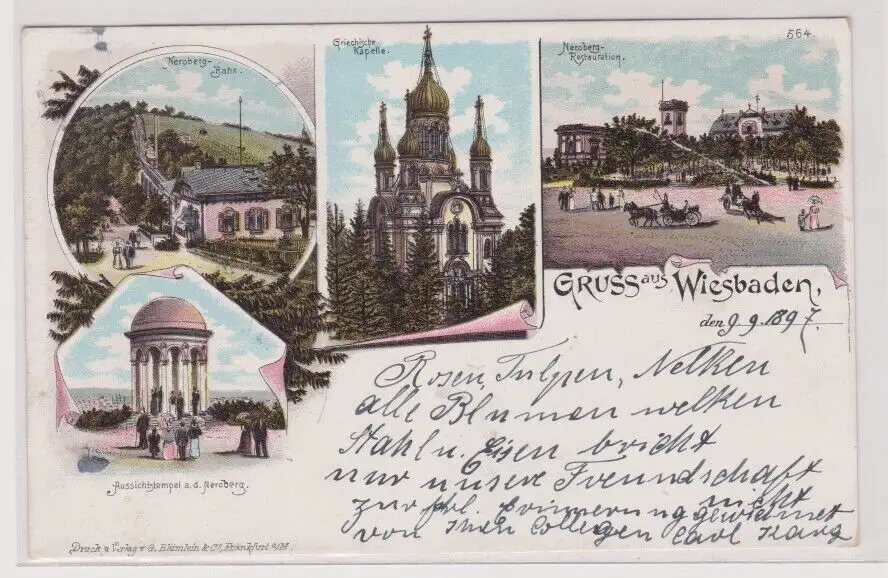 Neroberg-
Bahn.
Griechische
Kapelle.
Neroberg-
Restauration.
564.
GRUSS aus Wiesbaden,
den 9.9.1897.
Rosen, Tulpen, Nelken
alle Bluman welken
Stahl u. Eisen bricht
nur unsere Freundschaft
nicht
zur frl. Erinnerung gewidmet
von Ihrem Collegen Carl
Aussichtstempel a. d. Neroberg.
Druck u. Verlag v. G. Blümlein & Co, Frankfurt a/M.